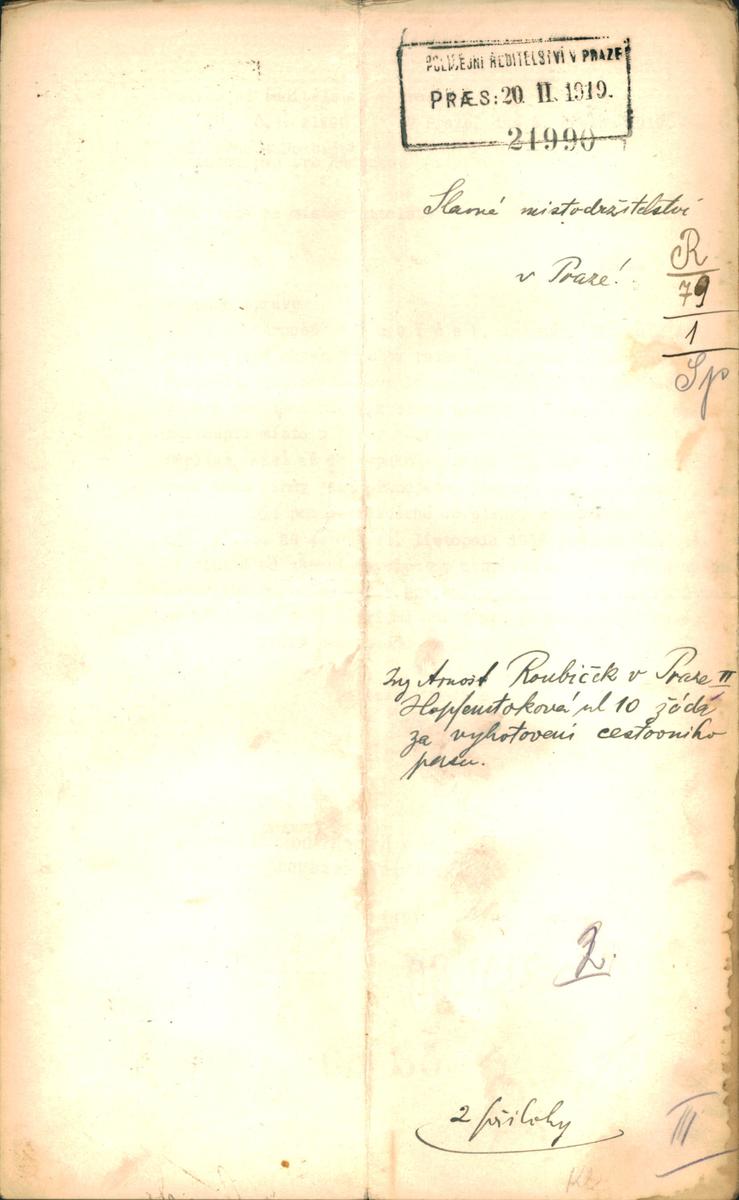 POLICEJNÍ ŘEDITELSTVÍ V PRAZE
PRÆS: 20. II. 1919.
21990
Slavné mistodržitelství
v Praze!
R
79
1
Sp
Ing Arnost Roubiček v Praze II
Hopfenstoková ul 10 žádá
za vyhotovení cestovního
passu.
2.
2 přílohy
III